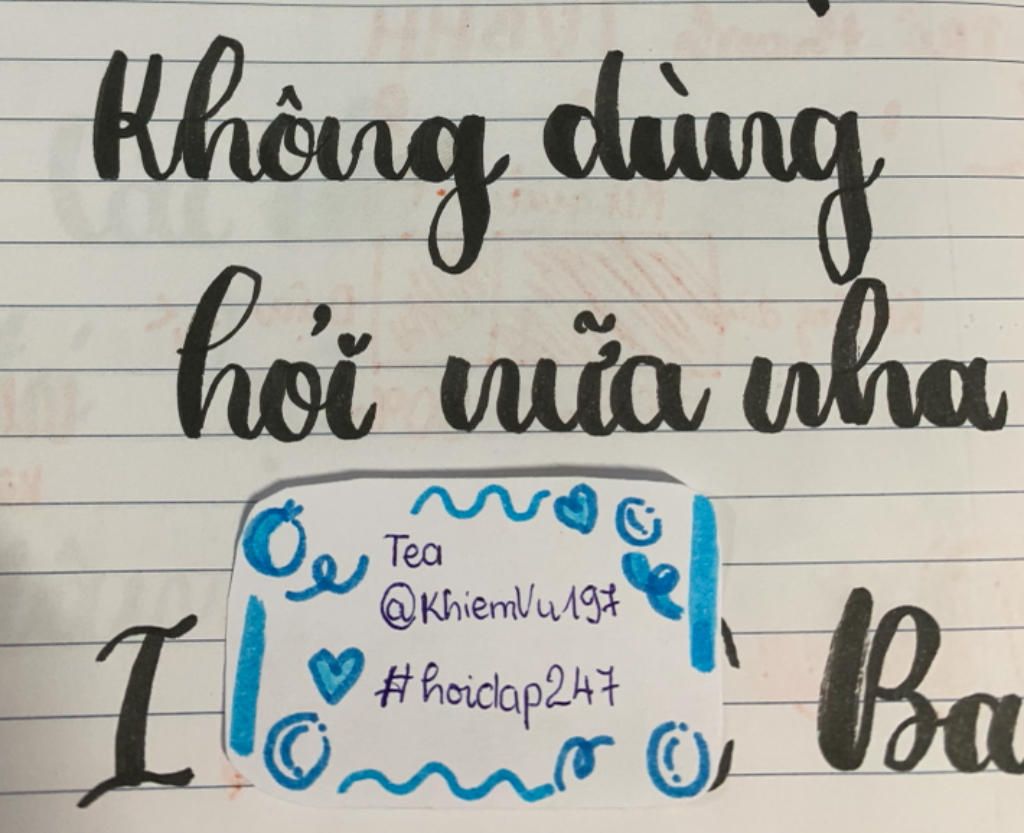 Không dùng
hỏi nữa nha
Tea
@KhiemVu197
#hoidap247
I
Ba